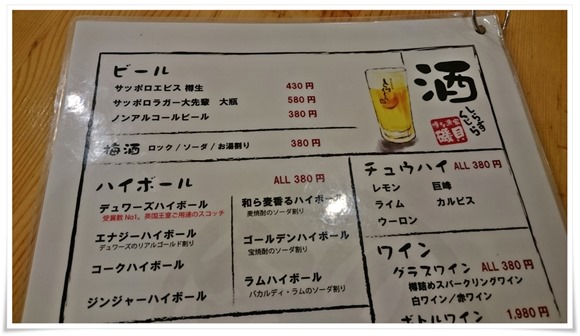 ビール
サッポロヱビス 樽生 430円
サッポロラガー大先輩 大瓶 580円
ノンアルコールビール 380円
梅酒 ロック / ソーダ / お湯割り 380円
酒
磯貝
ハイボール ALL 380円
デュワーズハイボール
受賞数No1。英国王室ご用達のスコッチ
エナジーハイボール
デュワーズのリアルゴールド割り
コークハイボール
ジンジャーハイボール
和ら麦香るハイボール
麦焼酎のソーダ割り
ゴールデンハイボール
宝焼酎のソーダ割り
ラムハイボール
バカルディ・ラムのソーダ割り
チュウハイ ALL 380円
レモン 巨峰
ライム カルピス
ウーロン
ワイン
グラスワイン ALL 380円
樽詰めスパークリングワイン
白ワイン/赤ワイン
ボトルワイン 1,980円